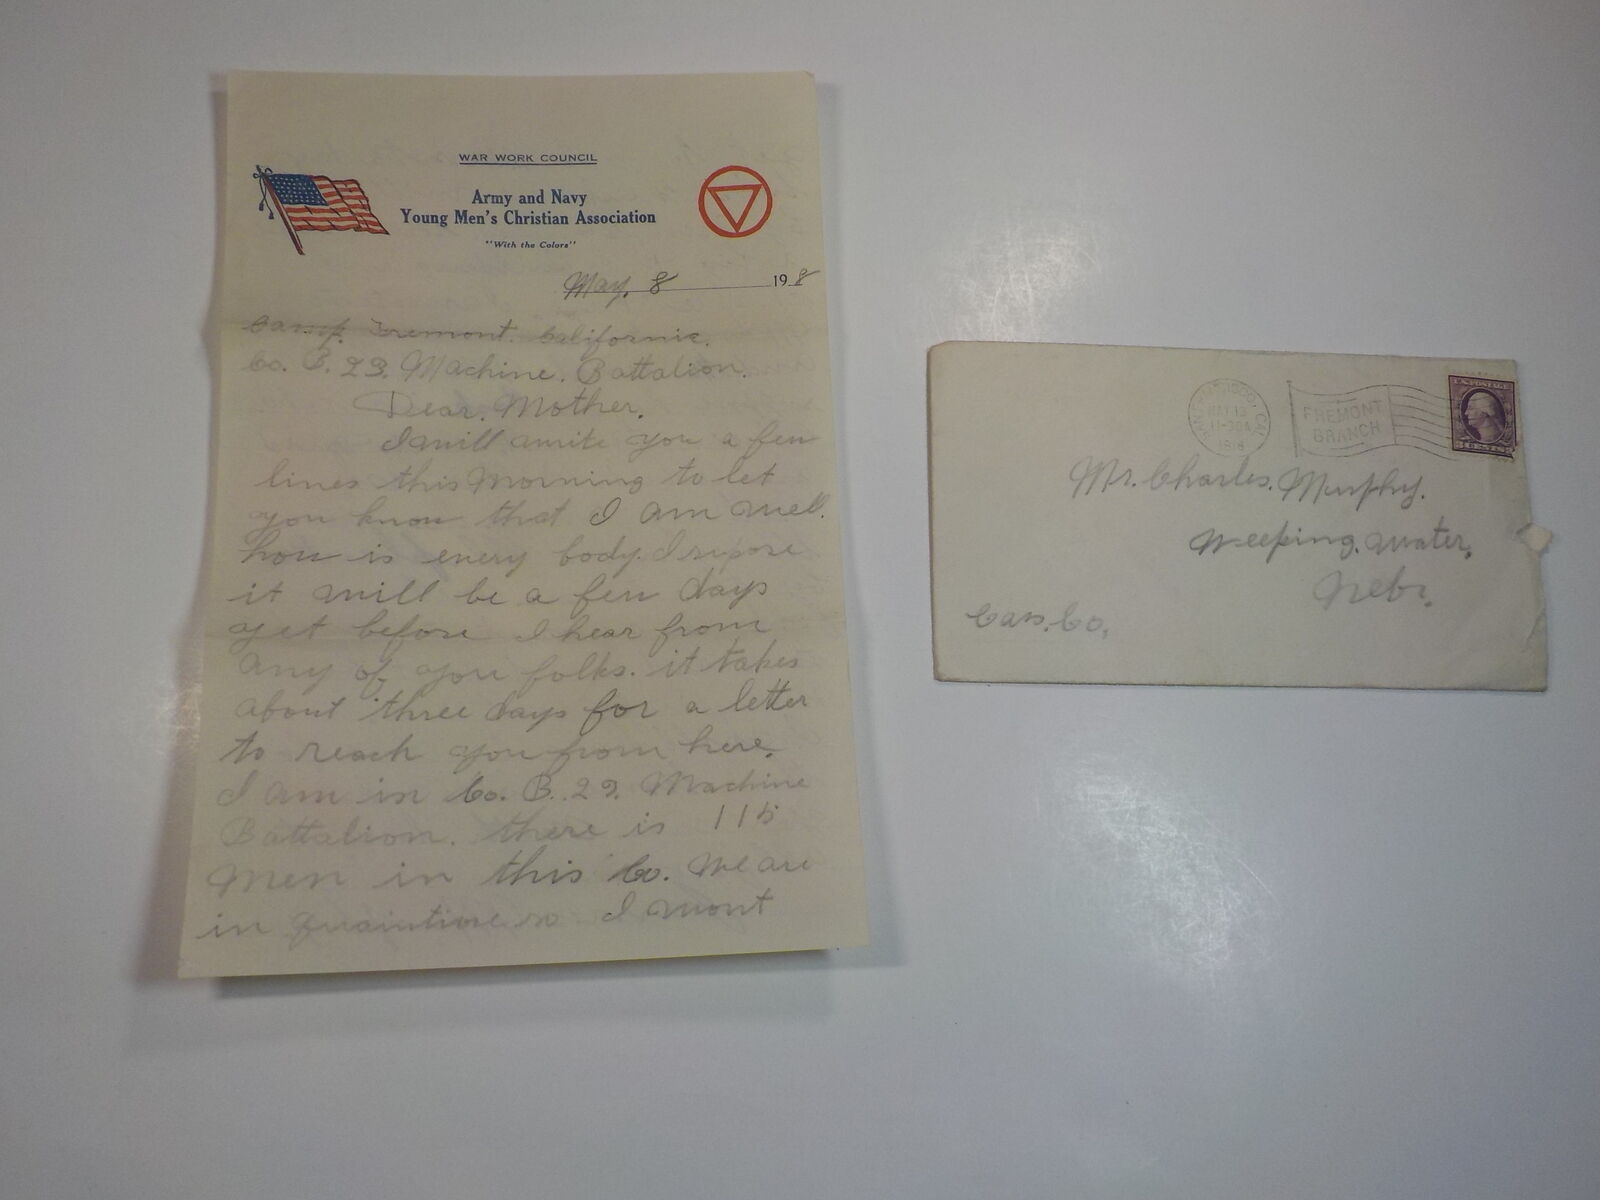 WAR WORK COUNCIL
Army and Navy
Young Men's Christian Association
"With the Colors"
May. 8 1918
Camp. Fremont. California.
Co. B. 23. Machine. Battalion.
Dear. Mother.
I will write you a few
lines this Morning to let
you know that I am well.
how is every body. I supose
it will be a few days
yet before I hear from
any of you folks. it takes
about three days for a letter
to reach you from here.
I am in Co. B. 23. Machine
Battalion. there is 115
Men in this Co. We are
in so I wont
SAN FRANCISCO, CAL.
MAY 13
11-30A
1918
FREMONT
BRANCH
U.S. POSTAGE
3 CENTS 3
Mr. Charles. Murphy.
Weeping. Water.
Nebr.
Cass. Co.